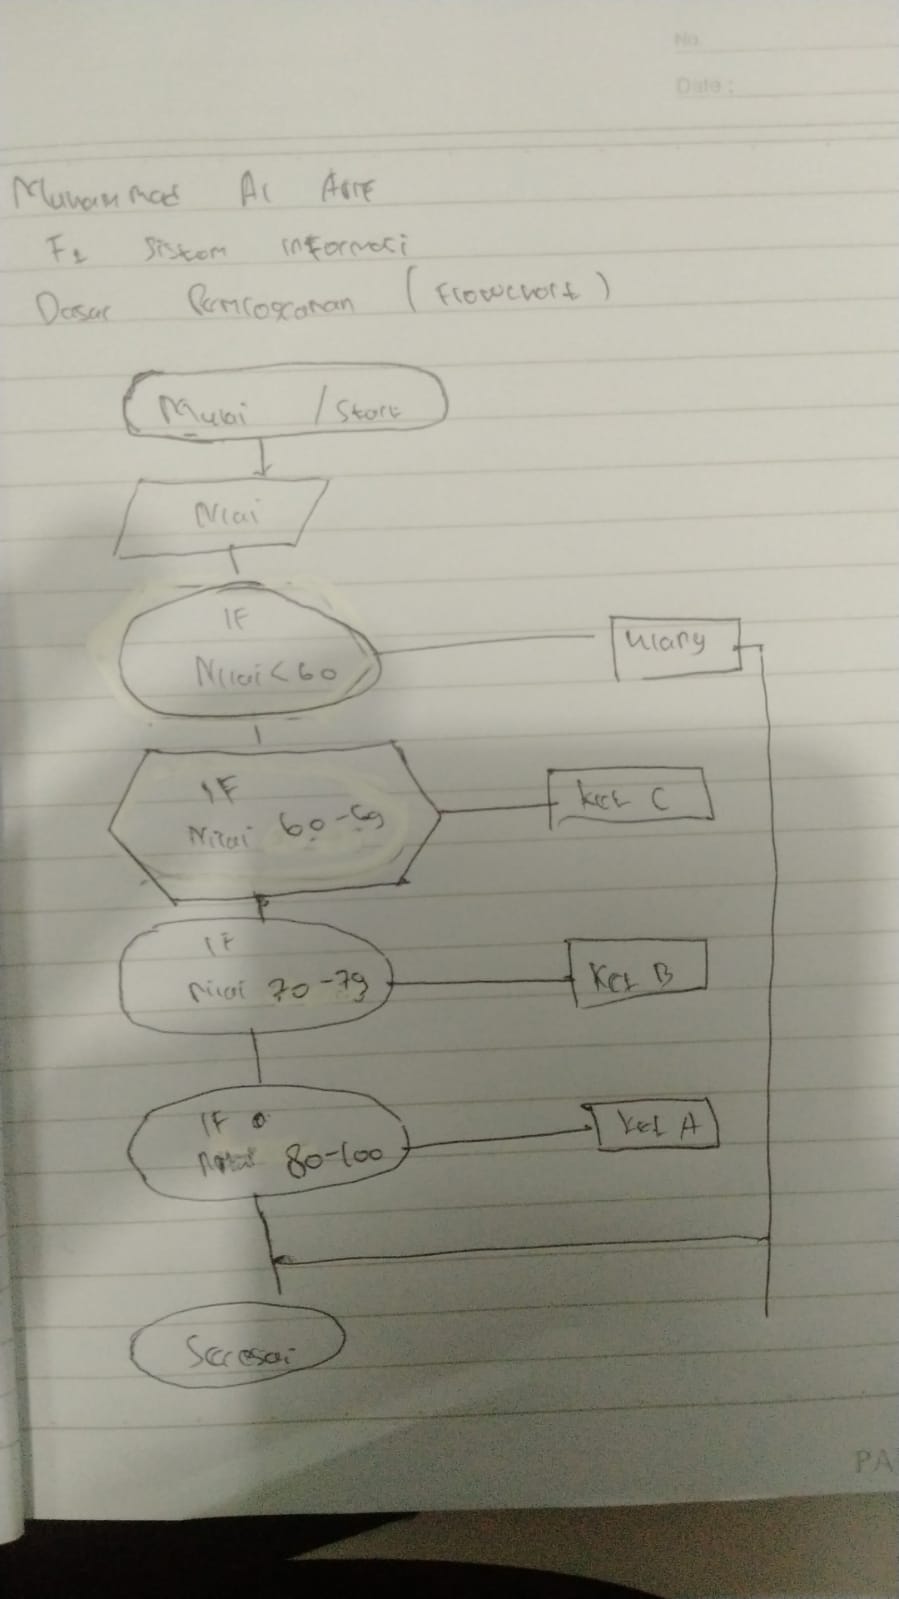 No.
Date :
Muhammad Al Arif
F1 Sistem informasi
Dasar Pemrograman (Flowchart)
Mulai / Start
Nilai
IF
Nilai < 60
Ulang
IF
Nilai 60-69
Ket C
IF
Nilai 70-79
Ket B
IF
Nilai 80-100
Ket A
Selesai
PA